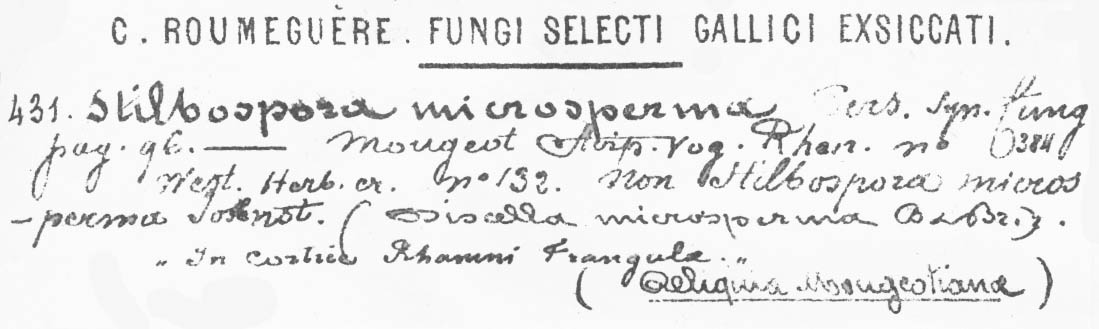 C. ROUMEGUÈRE. FUNGI SELECTI GALLICI EXSICCATI.
431. Stilbospora microsperma Pers. Syn. fung
pag. 96. — Mougeot Stirp. Vog. Rhen. no 384
West. Herb. cr. no 132. Non Stilbospora micros
-perma (Discella microsperma B & Br.).
„ In cortice Rhamni Frangulæ „
( Reliquiæ Mougeotianæ )